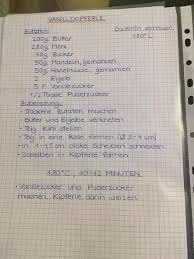 VANILLEKIPFERLE
Zutaten:
Backofen vorheizen
180°C
200g Butter
280g Mehl
70g Zucker
50g Mandeln, gemahlen
50g Haselnüsse, gemahlen
2 Eigelb
5 P. Vanillezucker
1/2 Tasse Puderzucker
Zubereitung:
• Trockene Zutaten mischen
• Butter und Eigelbe verkneten
• Teig kühl stellen
• Teig in eine Rolle formen (Ø 3-4 cm)
• In 1-1,5cm dicke Scheiben schneiden
• Scheiben in Kipferle formen
180°C, 10-12 MINUTEN
• Vanillezucker und Puderzucker
mischen, Kipferle darin wälzen.